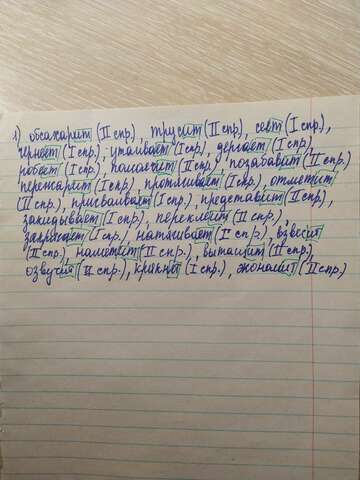 1) обсахарит (II спр.), трусит (II спр.), сеет (I спр.),
чернеет (I спр.), утаивает (I спр.), дергает (I спр.),
робеет (I спр.), поможет (II спр.), позабавит (II спр.)
пережарит (I спр.), протягивает (I спр.), отметит
(II спр.), присваивает (I спр.), представит (II спр.),
закидывает (I спр.), переклеит (II спр.),
заряжает (I спр.), натягивает (I спр.), взвесит
(II спр.), наметит (II спр.), вытащит (II спр.),
озвучит (II спр.), крикнет (I спр.), экономит (II спр.)